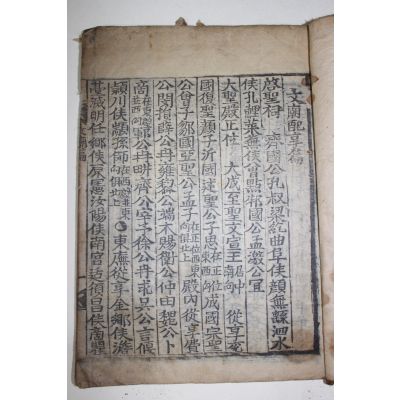 文廟配享篇
啓聖祠 齊國公孔叔梁紇曲阜侯顔無繇泗水
侯孔鯉萊蕪侯曾點邾國公孟激公宜
大聖殿正位 大成至聖文宣王居中南向 從享兗
國復聖顔子沂國述聖公子思在正位東西向成國宗聖
公曾子鄒國亞聖公孟子在正位西東向俱北上殿內從享費
公閔損薛公冉雍黎公端木賜衛公仲由魏公卜
商 公冉耕齊公宰予徐公冉求吳公言偃
潁川侯顓孫師在西 東向俱北上 東廡從享金鄕侯澹
臺滅明任鄕侯原憲汝陽侯南宮适須昌侯商瞿